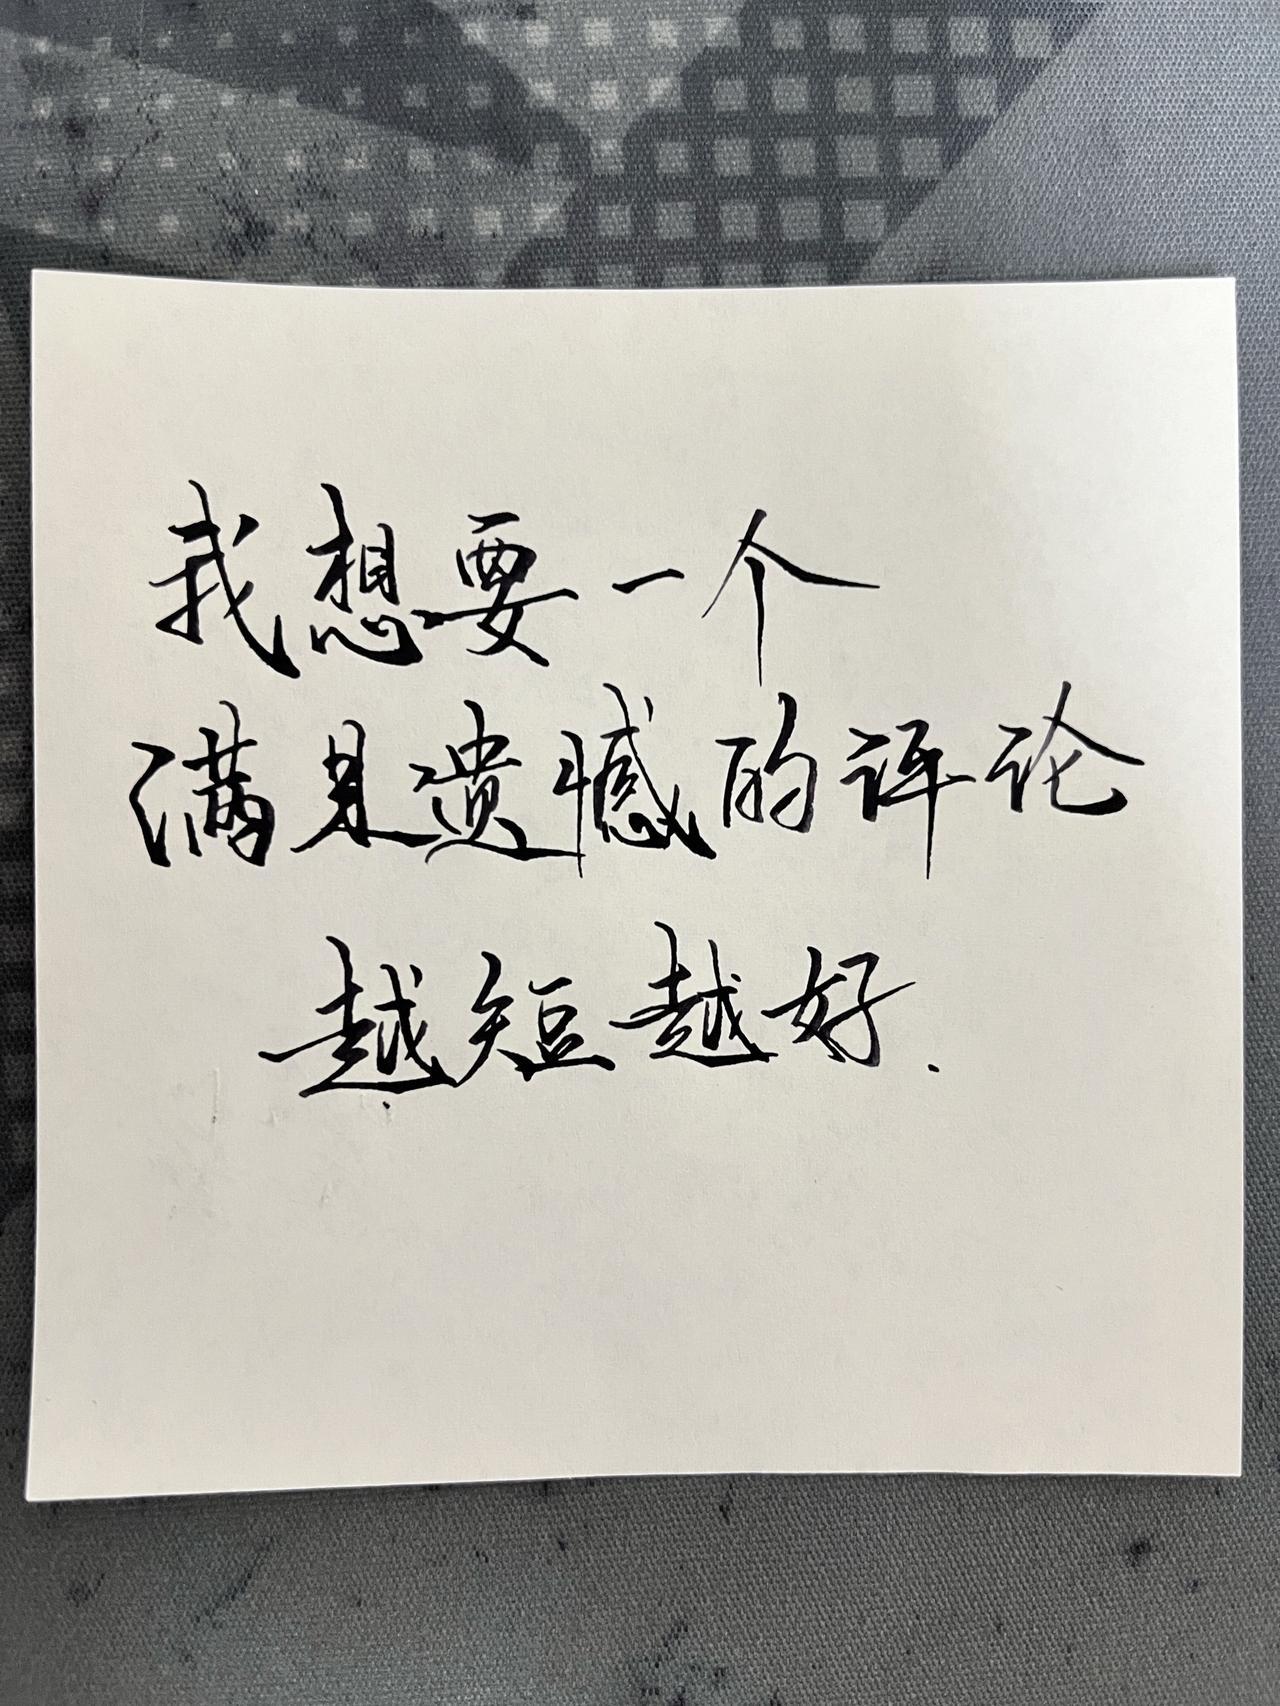 我想要一个
满是遗憾的评论
越短越好.